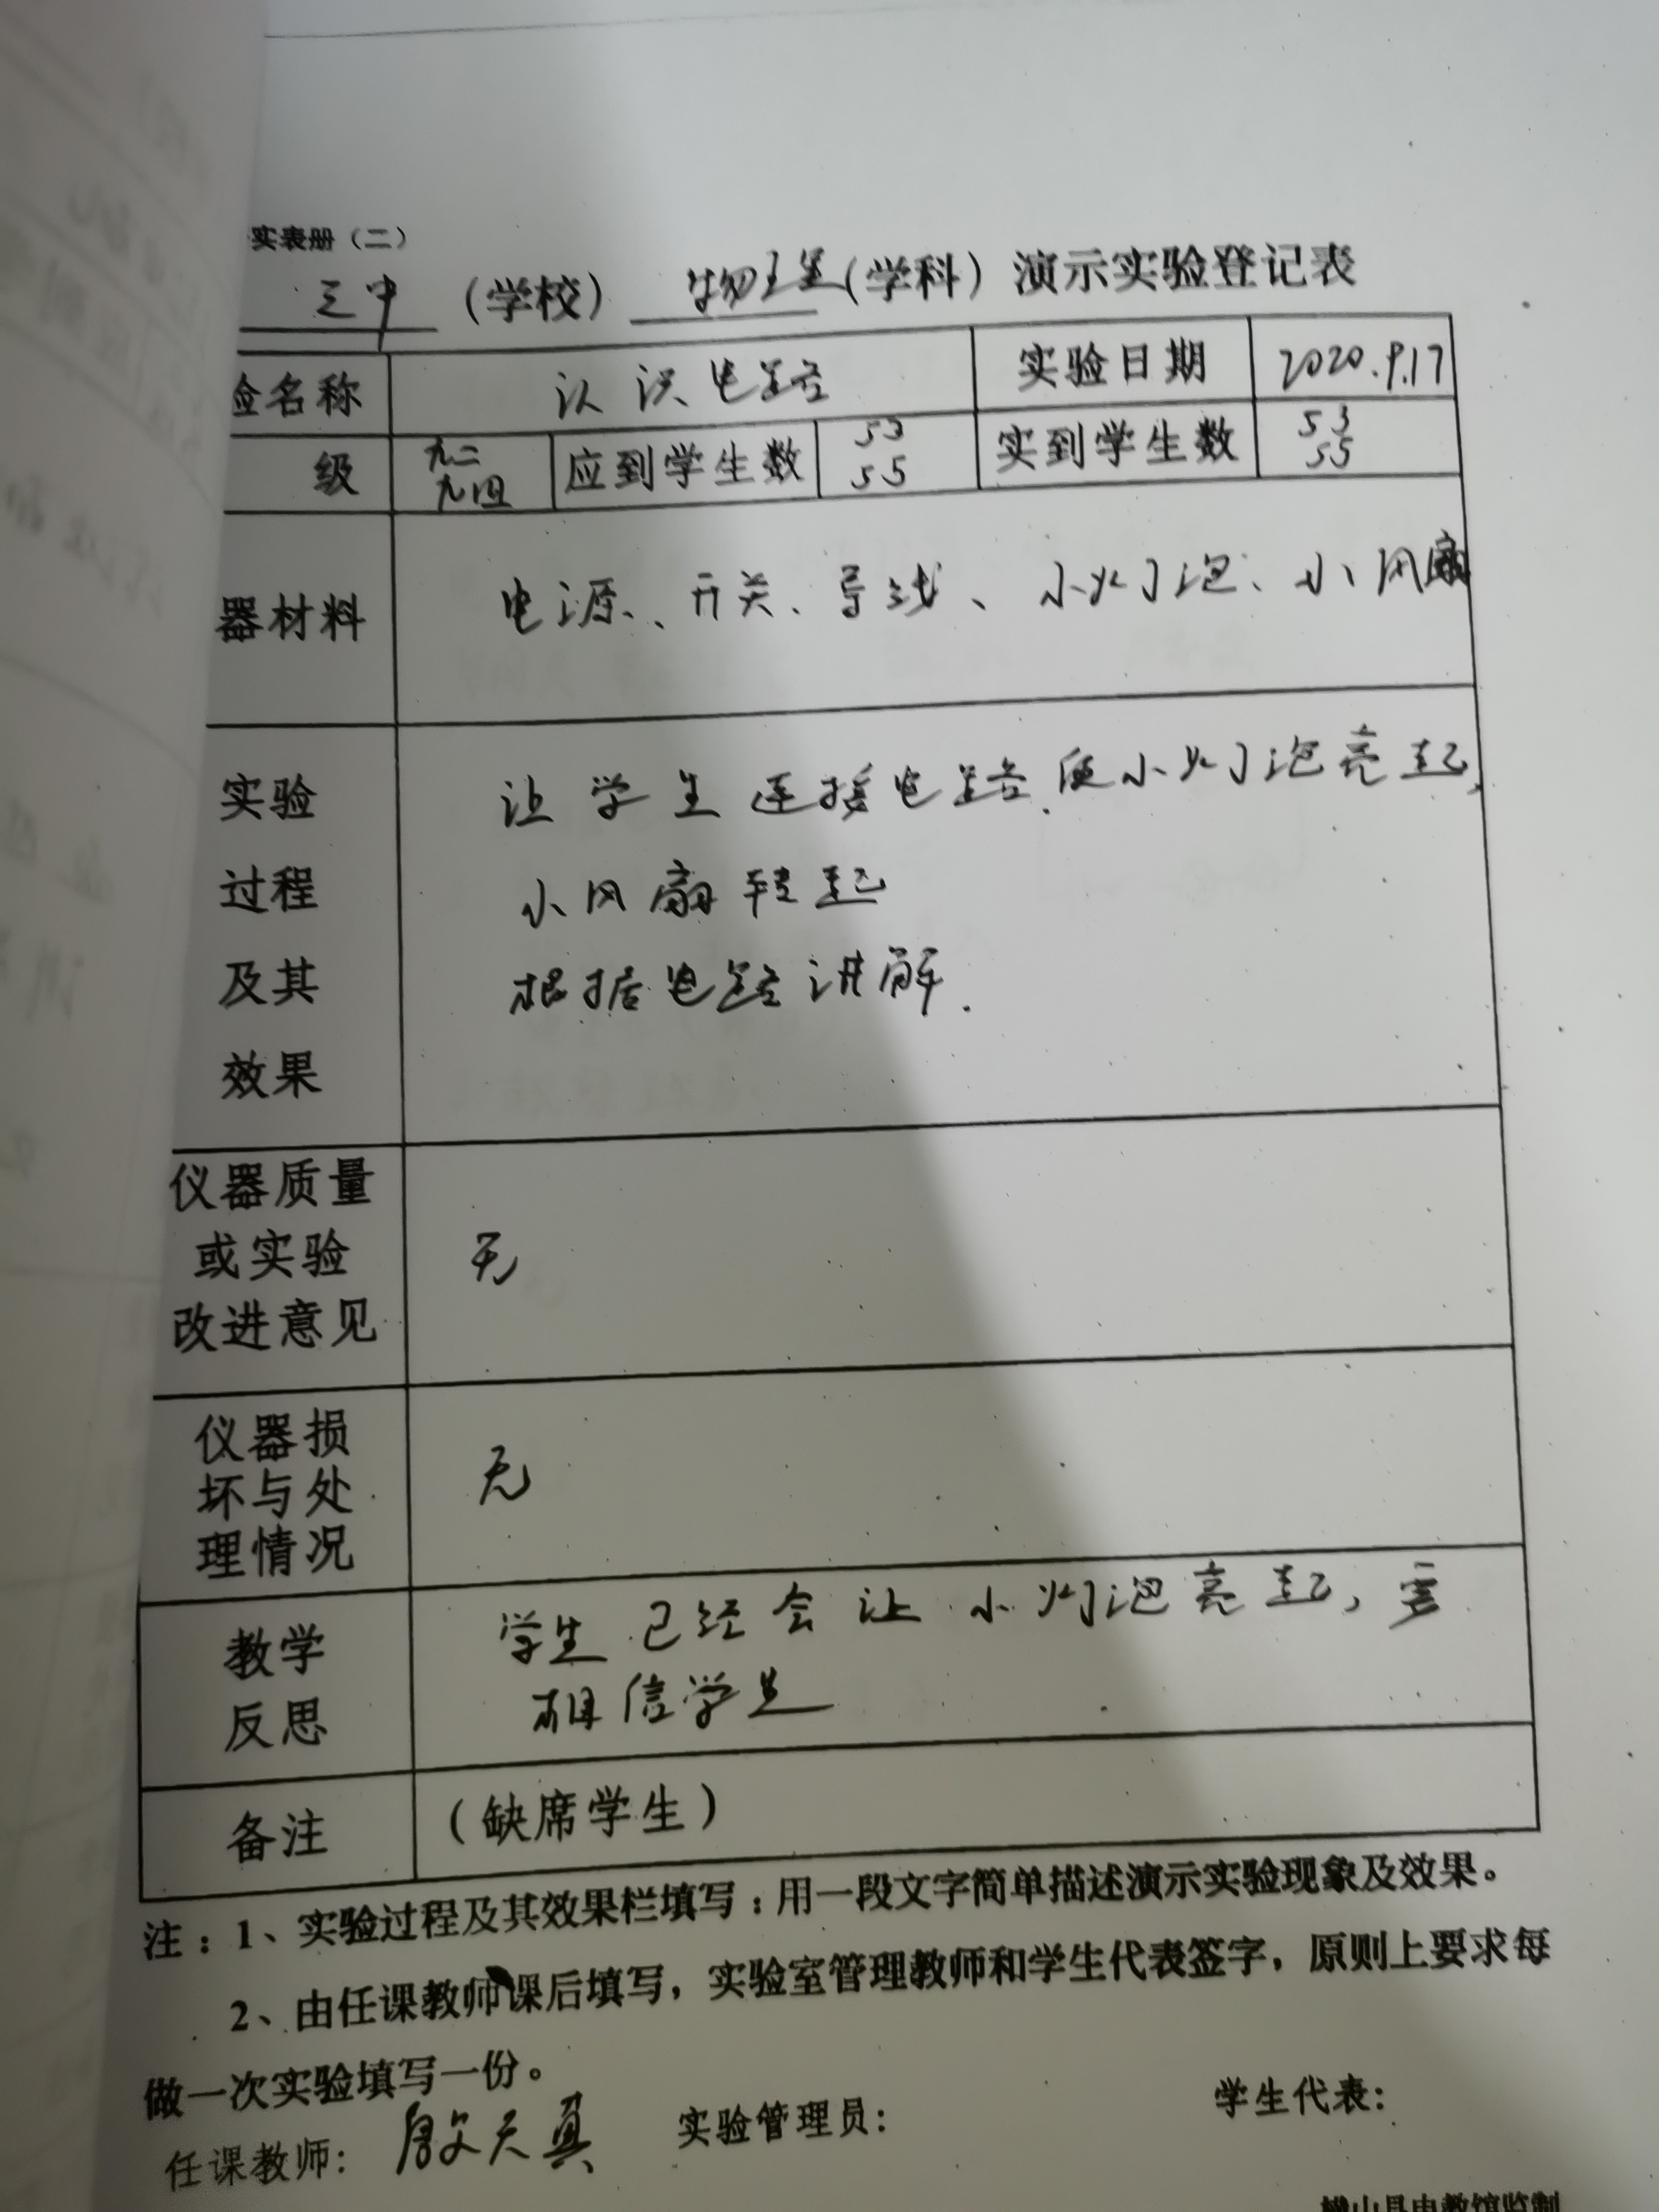 实表册（二）
三中（学校）物理（学科）演示实验登记表
验名称 认识电路 实验日期 2020.9.17
级 九二 九四 应到学生数 53 55 实到学生数 53 55
器材料 电源、开关、导线、小灯泡、小风扇
实验
过程
及其
效果
让学生连接电路.使小灯泡亮起,
小风扇转起
根据电路讲解.
仪器质量
或实验
改进意见
无
仪器损
坏与处
理情况
无
教学
反思
学生已经会让小灯泡亮起，要
相信学生
备注 （缺席学生）
注：1、实验过程及其效果栏填写：用一段文字简单描述演示实验现象及效果。
2、由任课教师课后填写，实验室管理教师和学生代表签字，原则上要求每
做一次实验填写一份。
任课教师: 实验管理员: 学生代表: